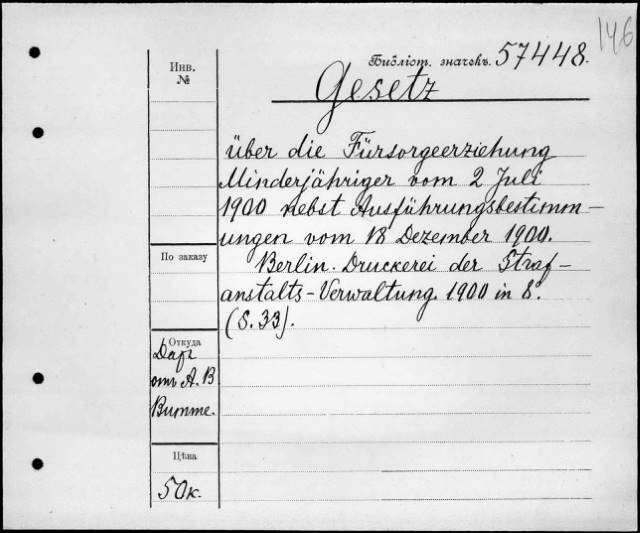 146
Библіот. значекъ. 57448.
Gesetz
über die Fürsorgeerziehung
Minderjähriger vom 2 Juli
1900 nebst Ausführungsbestimm-
ungen vom 18 Dezember 1900.
Berlin. Druckerei der Straf-
anstalts-Verwaltung. 1900 in 8°.
(S. 33).
Инв.
№
По заказу
Откуда
Даръ
отъ А. В
Витте.
Цѣна
50к.